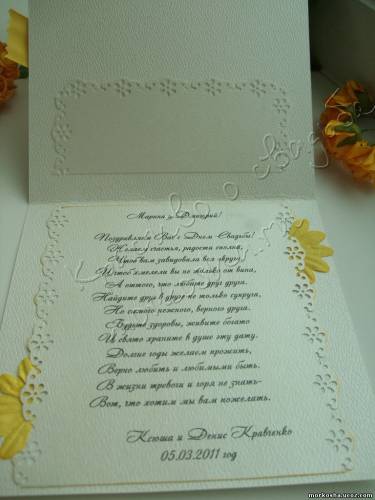 Марина и Дмитрий!
Поздравляем Вас с Днем Свадьбы!
Желаем счастья, радости сполна,
Чтоб вам завидовала вся округа,
И чтоб хмелели вы не только от вина,
А оттого, что любите друг друга.
Найдите друг в друге не только супруга,
Но самого нежного, верного друга.
Будьте здоровы, живите богато
И свято храните в душе эту дату.
Долгие годы желаем прожить,
Верно любить и любимыми быть.
В жизни тревоги и горя не знать-
Вот, что хотим мы вам пожелать.
Ксюша и Денис Кравченко
05.03.2011 год
morkosha.ucoz.com